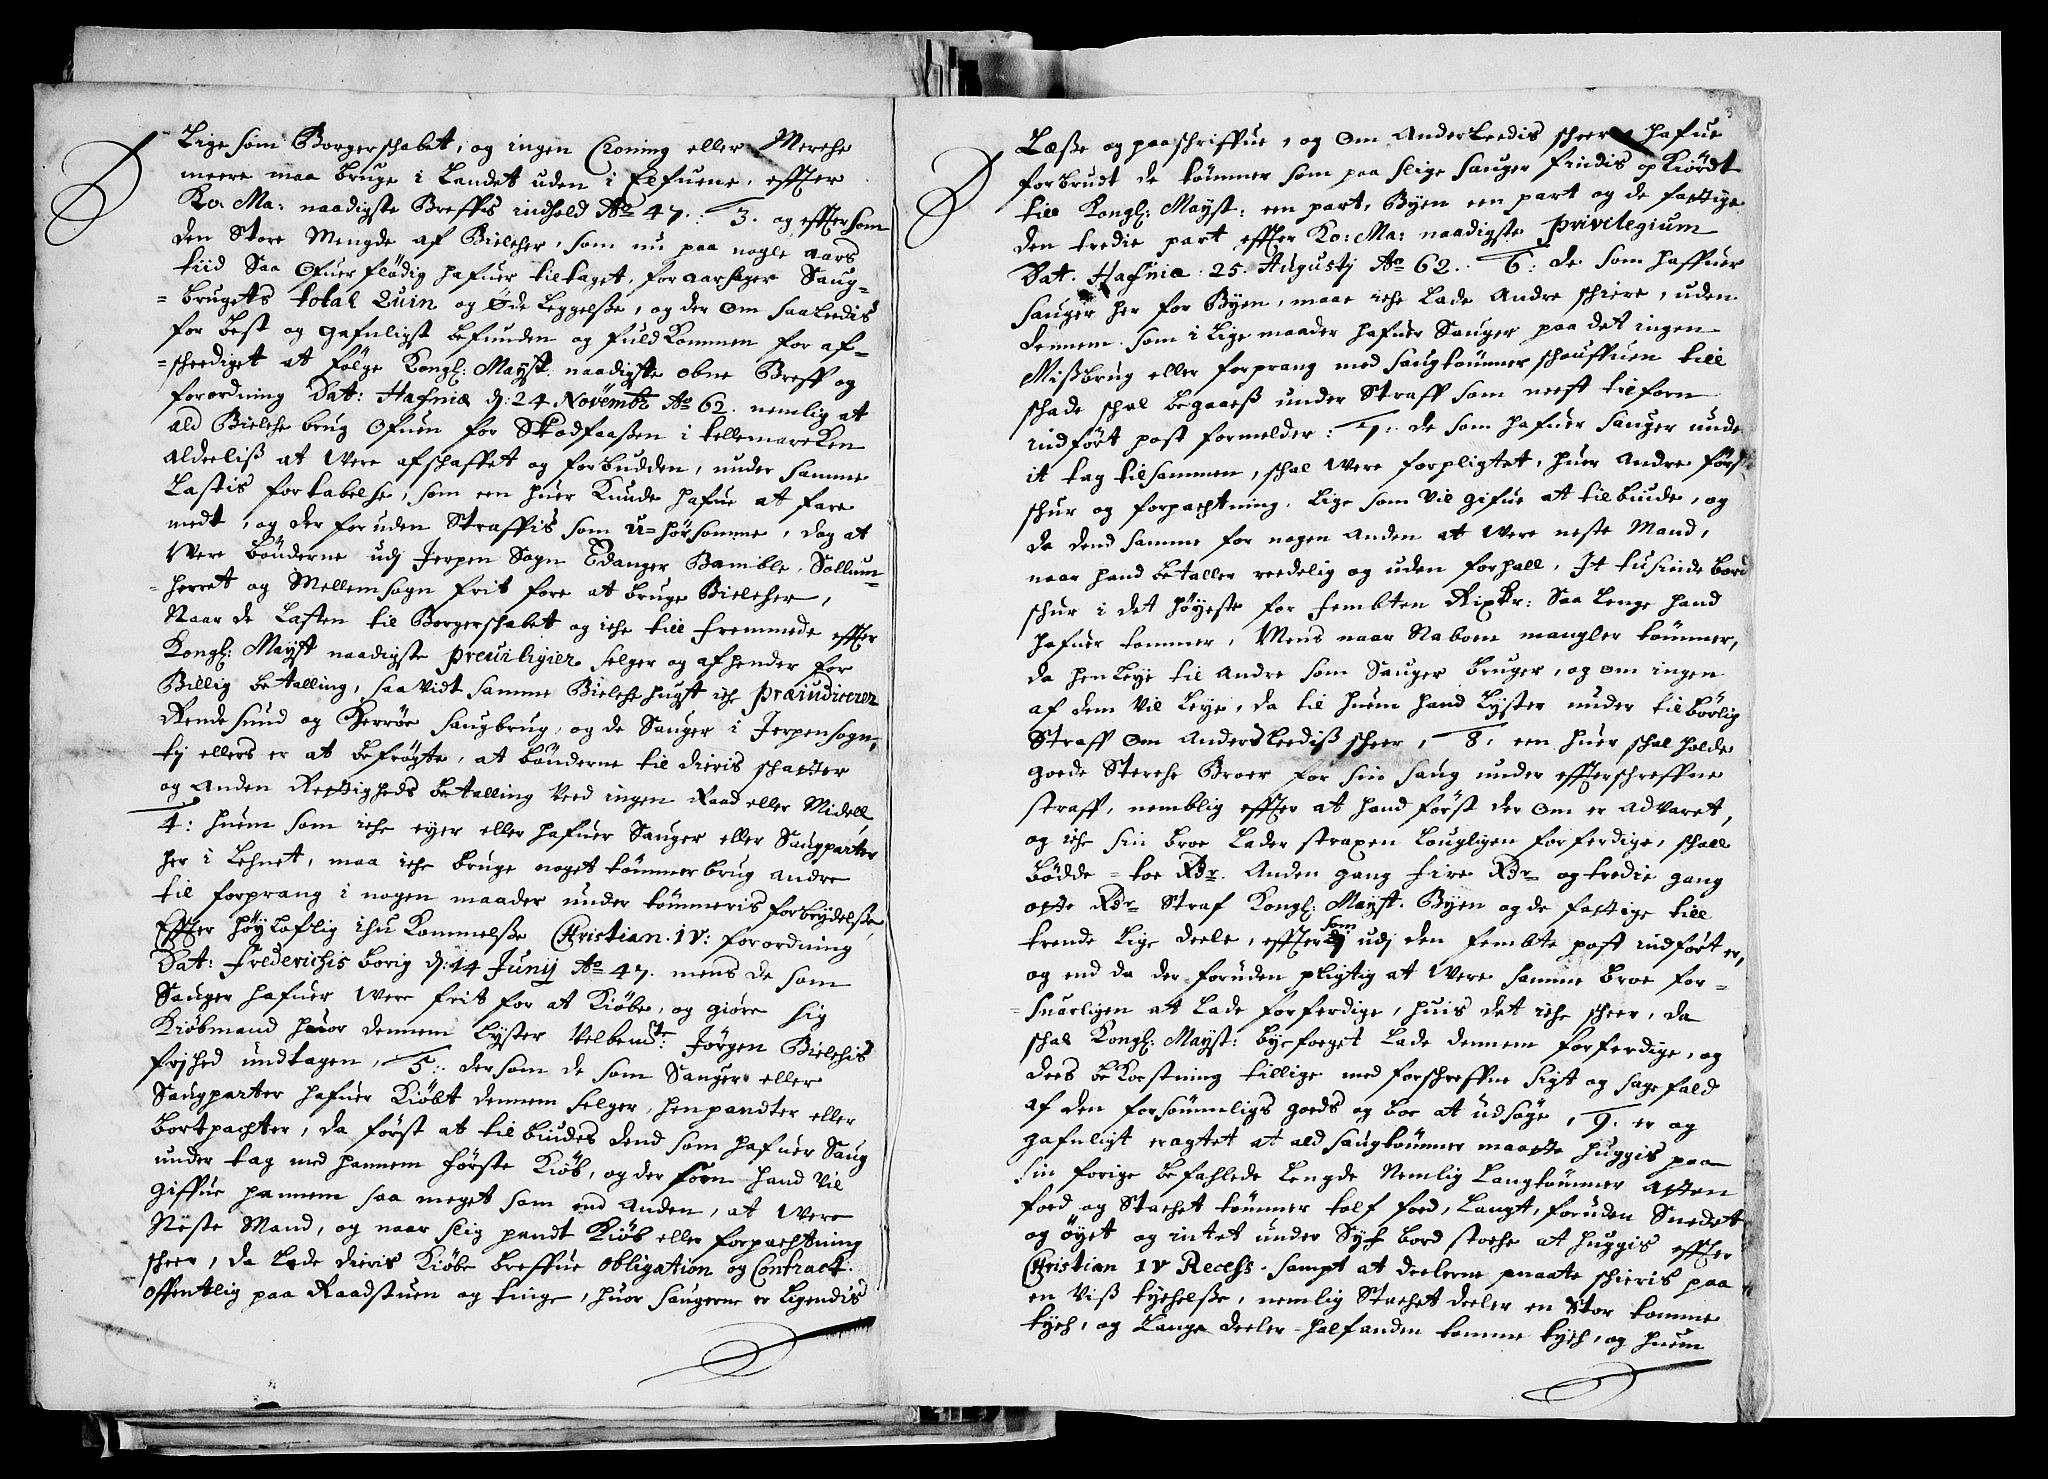 Lige som Borgerschabet, og ingen Croning eller Merche
meere maa bruge i Landet uden i Elfuene, effter
Ko: Ma: naadigste Breffis indhold Ao 47. 3. og effter som
den Store Mengde af Bielcher, som nu paa nogle aars
tiid Saa ofuerflödig hafuer tiltaget, foraarsager Saug-
=brugets total Ruin og Öde Leggelsse, og der om saaleedis
for best og gafnligst befunden og fuldkommen for af-
=scheediget at fölge Kongl: Mayst. naadigste obne Breff og
forordning Dat: Hafniæ d: 24 Novembr Ao 62. nemlig at
ald Bielche brug ofuen for Skodfaassen i tellemarcken
alderliss at Were afschaffet og forbudden, under samme
Lastis fortabelse, som een huer kunde hafue at fare
medt, og der foruden Straffis som u=hörsomme, dog at
Were bönderne udj Jerpen Sogn Edanger Bamble, Sollum-
=herret og Mellemsogn frit fore at bruge Bielcher,
Naar de Lasten til Borgerschabet og iche till fremmede effter
Kongl: Mayst naadigste preuiligier selger og afhender for
Billig betalling, saa vidt samme Bielche hugst iche præiudicerer
Rende sund og Herröe saugbrug, og de Sauger i Jerpensogn,
tj ellers er at befrögte, at bönderne til dieris schatter
og anden Rettigheds betalling Veed ingen Raad eller Midell
4: huem som iche eyer eller hafuer Sauger eller Saugparter
her i Lehnet, maa iche bruge noget tömmerbrug andre
til forprang i nogen maader under tömmeris forbrydelsse
Effter höyloflig ihukommelsse Christian. IV: forordning
Dat: Frederichis borig d: 14 Junij Ao 47. mens de som
Sauger hafuer Were frit for at kiöbe, og giöre sig
kiöbmand huor dennem Lyster Velbemt: Jörgen Bielchis
frjhed undtagen, 5: dersom de som Sauger eller
Saugparter hafuer kiöbt dennem selger, henpandter eller
bortpachter, da först at tilbiudes dend som hafuer Saug
under tag med hannem förste kiöb, og der som hand vil
giffue hannem saa meget som end Anden, at Were
Neste Mand, og naar slig pandt kiöb eller forpachtning
scheer, da Lade dieris kiöbe breffue obligation og Contract
offentlig paa Raadstuen og tinge, huor saugerne er Ligendis
3
Læsse og paaschriffue, og om Anderleedis scheer, hafue
forbrudt de tömmer som paa slige Sauger findis opkiördt
till Kongl: Mayst: een part, Byen een part og de fattige
den tredie part effter Ko: Ma: naadigste privilegium
Dat. Hafniæ. 25. Augustj Ao 62. 6: de som haffuer
Sauger her for Byen, maae iche Lade Andre schiere, uden
dennem som i Lige maader hafuer Sauger paa det ingen
Missbrug eller forprang med saugtömmer schouffuen till
schade schal begaaess under Straff som nest tilforn
indfört post formelder: 7: de som hafuer Sauger unde
it tag tilsammen, schal Were forpligtet, huer Andre först
schur og forpachtning, Lige som vil gifue at tilbiude, og
da dend samme for nogen anden at Were neste Mand,
naar hand betaller reedelig og uden forhall, It tusinde bord
schur i det höyeste for fembten Rixdr: Saa Lenge hand
hafuer tommer, Mens naar Naboen mangler tömmer,
da hen Leye til Andre som Sauger bruger, og om ingen
af dem vil Leye, da til huem hand Lyster under tilbörlig
Straff om Anderleediss scheer, 8: een huer schal holde
goede Sterche Broer for sin saug under effterschreffne
straff, nemblig effter at hand först der om er advaret,
og iche sin broe Lader straxen Lougligen forferdige, schall
bödde = toe Rdr. Anden gang fire Rdr og tredie gang
otte Rdr Straf Kongl: Mayst. Byen og de fattige till
trende Lige deele, effter som udj den fembte post indfört er,
og end da der foruden pligtig at Were samme broe for-
=suarligen at Lade forferdige, huis det iche scheer, da
schal Kongl: Mayst: byefoeget Lade dennem forferdige, og
dees bekostning tillige med forschreffne sigt og sagefald
af den forsömmeligs goeds og boe at udsöge, 9. er og
gafnligt eragtet at ald saugtömmer maatte huggis paa
sin forige befahlede Lengde Nemlig Langtömmer Atten
foed og Stachet tömmer tolf foed, Langt, foruden Snedet
og öyet og intet under Syf bord stoche at huggis effter
Christian IV Recess. sampt at deelerne maatte schieris paa
en viss tychelsse, nemlig Stachet deeler en Stor tomme
tych, og Lange deeler halfanden tomme tych, og huem